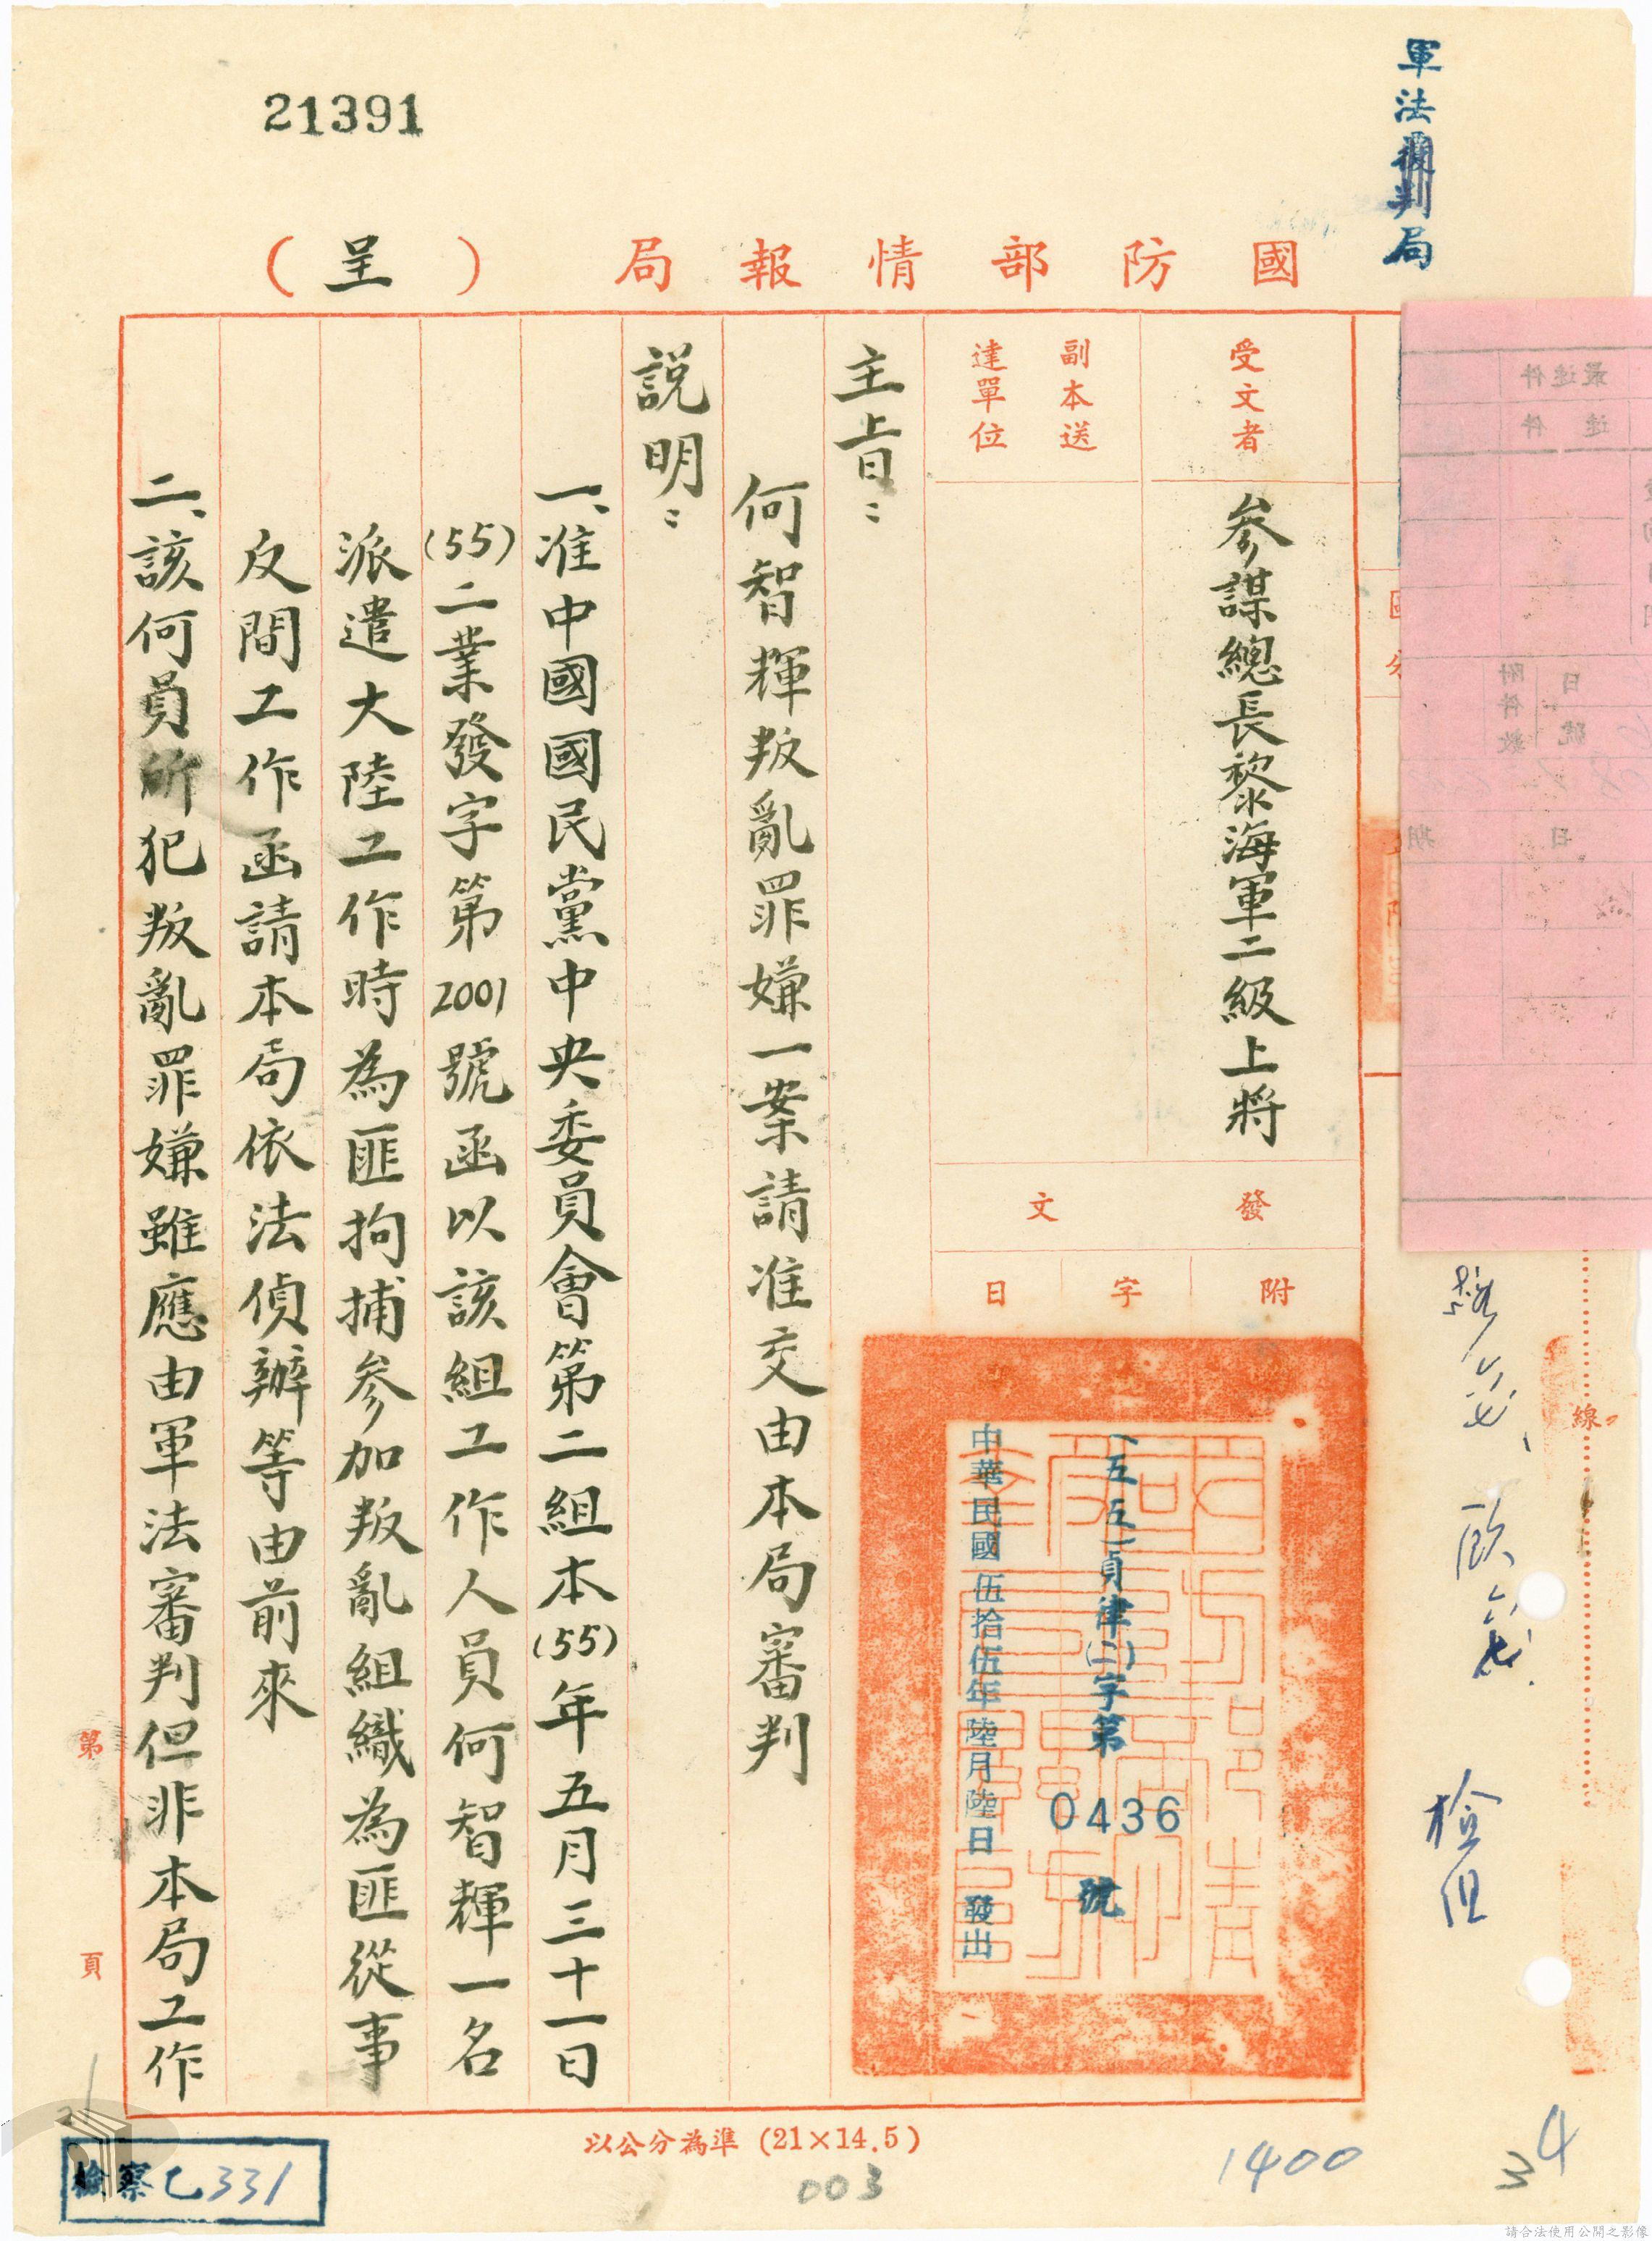 21391
軍法覆判局
國防部情報局(呈)
受文者
參謀總長黎海軍二級上將
副本送
達單位
發文
附
字
日
(五五)貞律(二)字第0436號
中華民國伍拾伍年陸月陸日發出
主旨：
何智輝叛亂罪嫌一案請准交由本局審判
説明：
一、准中國國民黨中央委員會第二組本(55)年五月三十一日
(55)二業發字第2001號函以該組工作人員何智輝一名
派遣大陸工作時為匪拘捕參加叛亂組織為匪從事
反間工作函請本局依法偵辦等由前來
二、該何員所犯叛亂罪嫌雖應由軍法審判但非本局工作
第頁
線
最速件
速件
附件數
日
號
日期
以公分為準(21×14.5)
003
1400
34
檢察乙331
請合法使用公開之影像